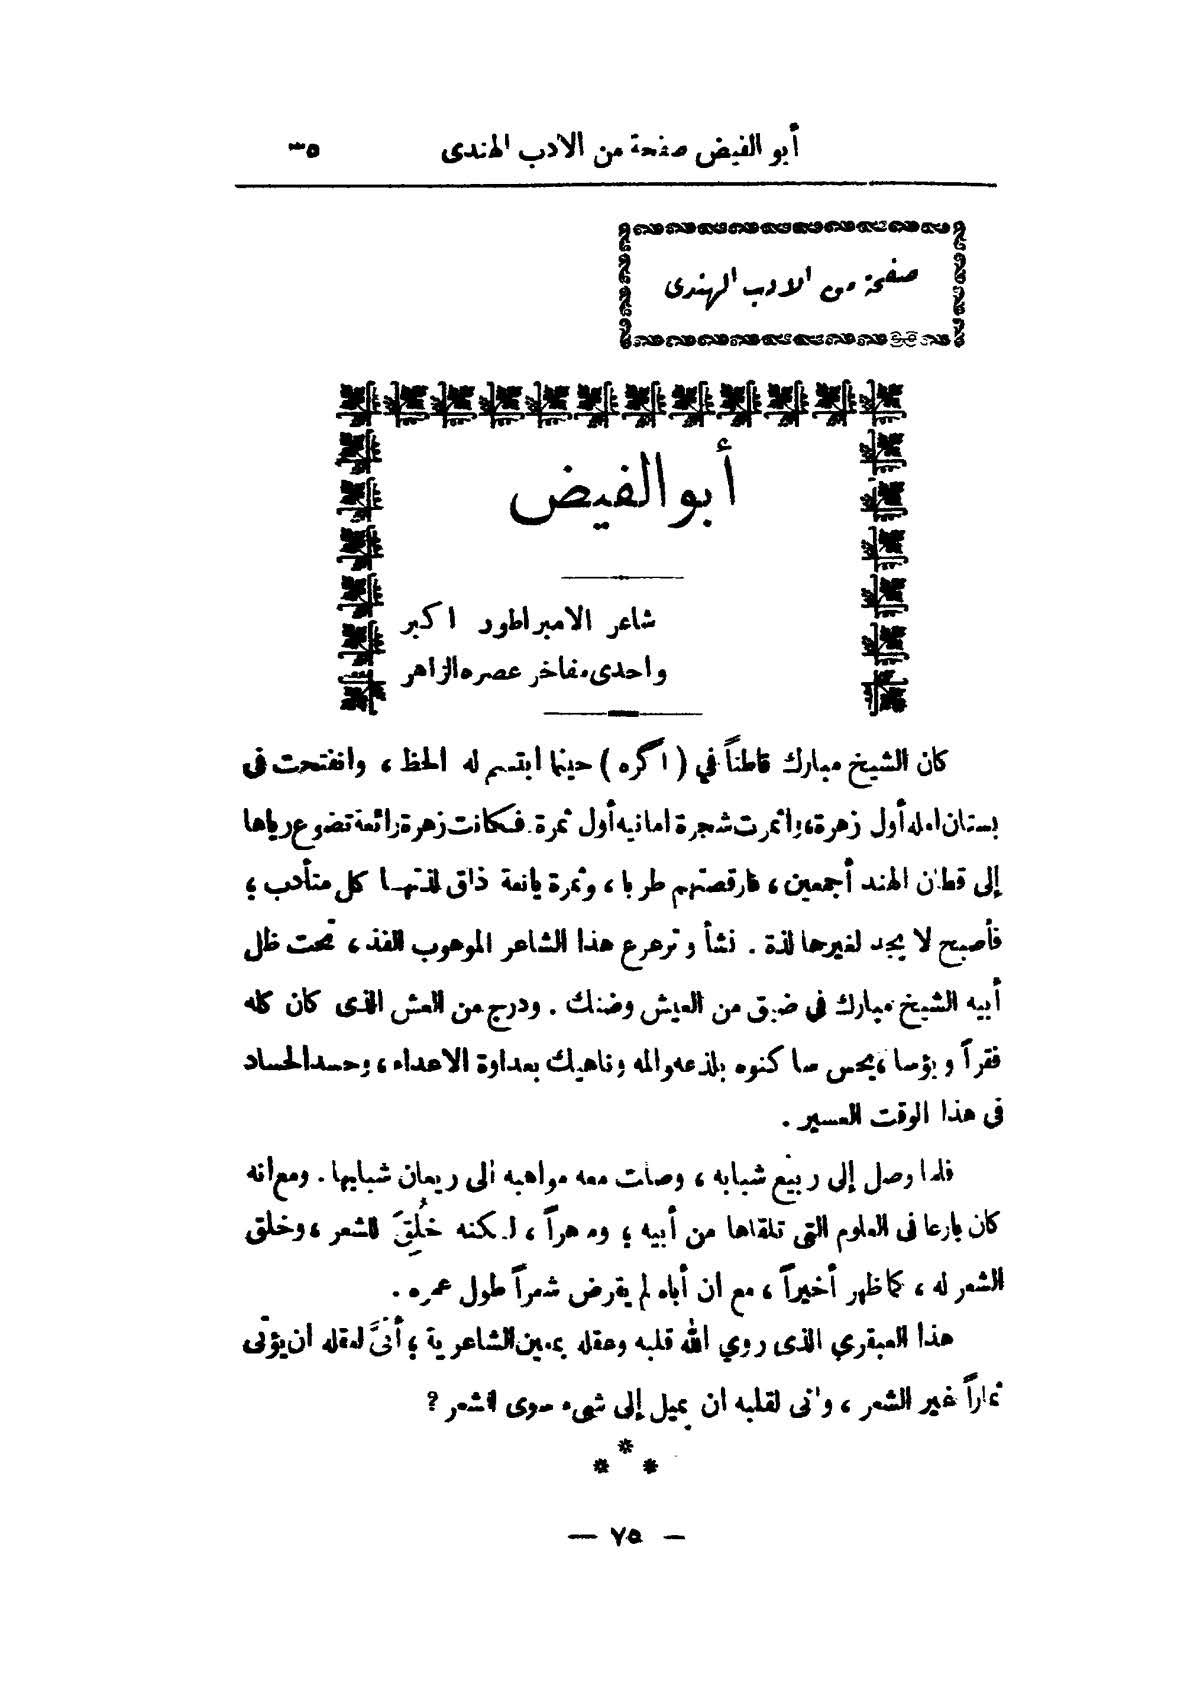 أبو الفيض صفحة من الادب الهندى ٣٥
صفحة من الادب الهندى
أبو الفيض
شاعر الامبراطور اكبر
واحدى مفاخر عصره الزاهر
كان الشيخ مبارك قاطناً في ( اكره ) حينما ابتسم له الحظ ، وانفتحت فى
بستان امله أول زهرة، واثمرت شجرة امانيه أول ثمرة. فكانت زهرة رائعة تضوع رياها
إلى قطان الهند أجمعين ، فارقصتهم طربا ، وثمرة يانعة ذاق لذتهـا كل متأدب ؛
فأصبح لا يجد لغيرها لذة . نشأ وترعرع هذا الشاعر الموهوب الفذ ، تحت ظل
أبيه الشيخ مبارك في ضيق من العيش وضنك . ودرج من العش الذى كان كله
فقراً وبؤسا ، يحس ساكنوه بلذعه والمه وناهيك بعداوة الاعداء ، وحسد الحساد
فى هذا الوقت العسير .
فلما وصل إلى ربيع شبابه ، وصلت معه مواهبه الى ريعان شبابها . ومع انه
كان بارعا فى العلوم التى تلقاها من أبيه ؛ وماهراً ، لـكنه خُلِقَ للشعر ، وخلق
الشعر له ، كما ظهر أخيراً ، مع ان أباه لم يقرض شعراً طول عمره .
هذا العبقري الذى روي الله قلبه وعقله بمعين الشاعرية ؛ أنَّى لعقله ان يؤتى
ثماراً غير الشعر ، وانى لقلبه ان يميل إلى شىء سوى الشعر ؟
* * *
— ٧٥ —